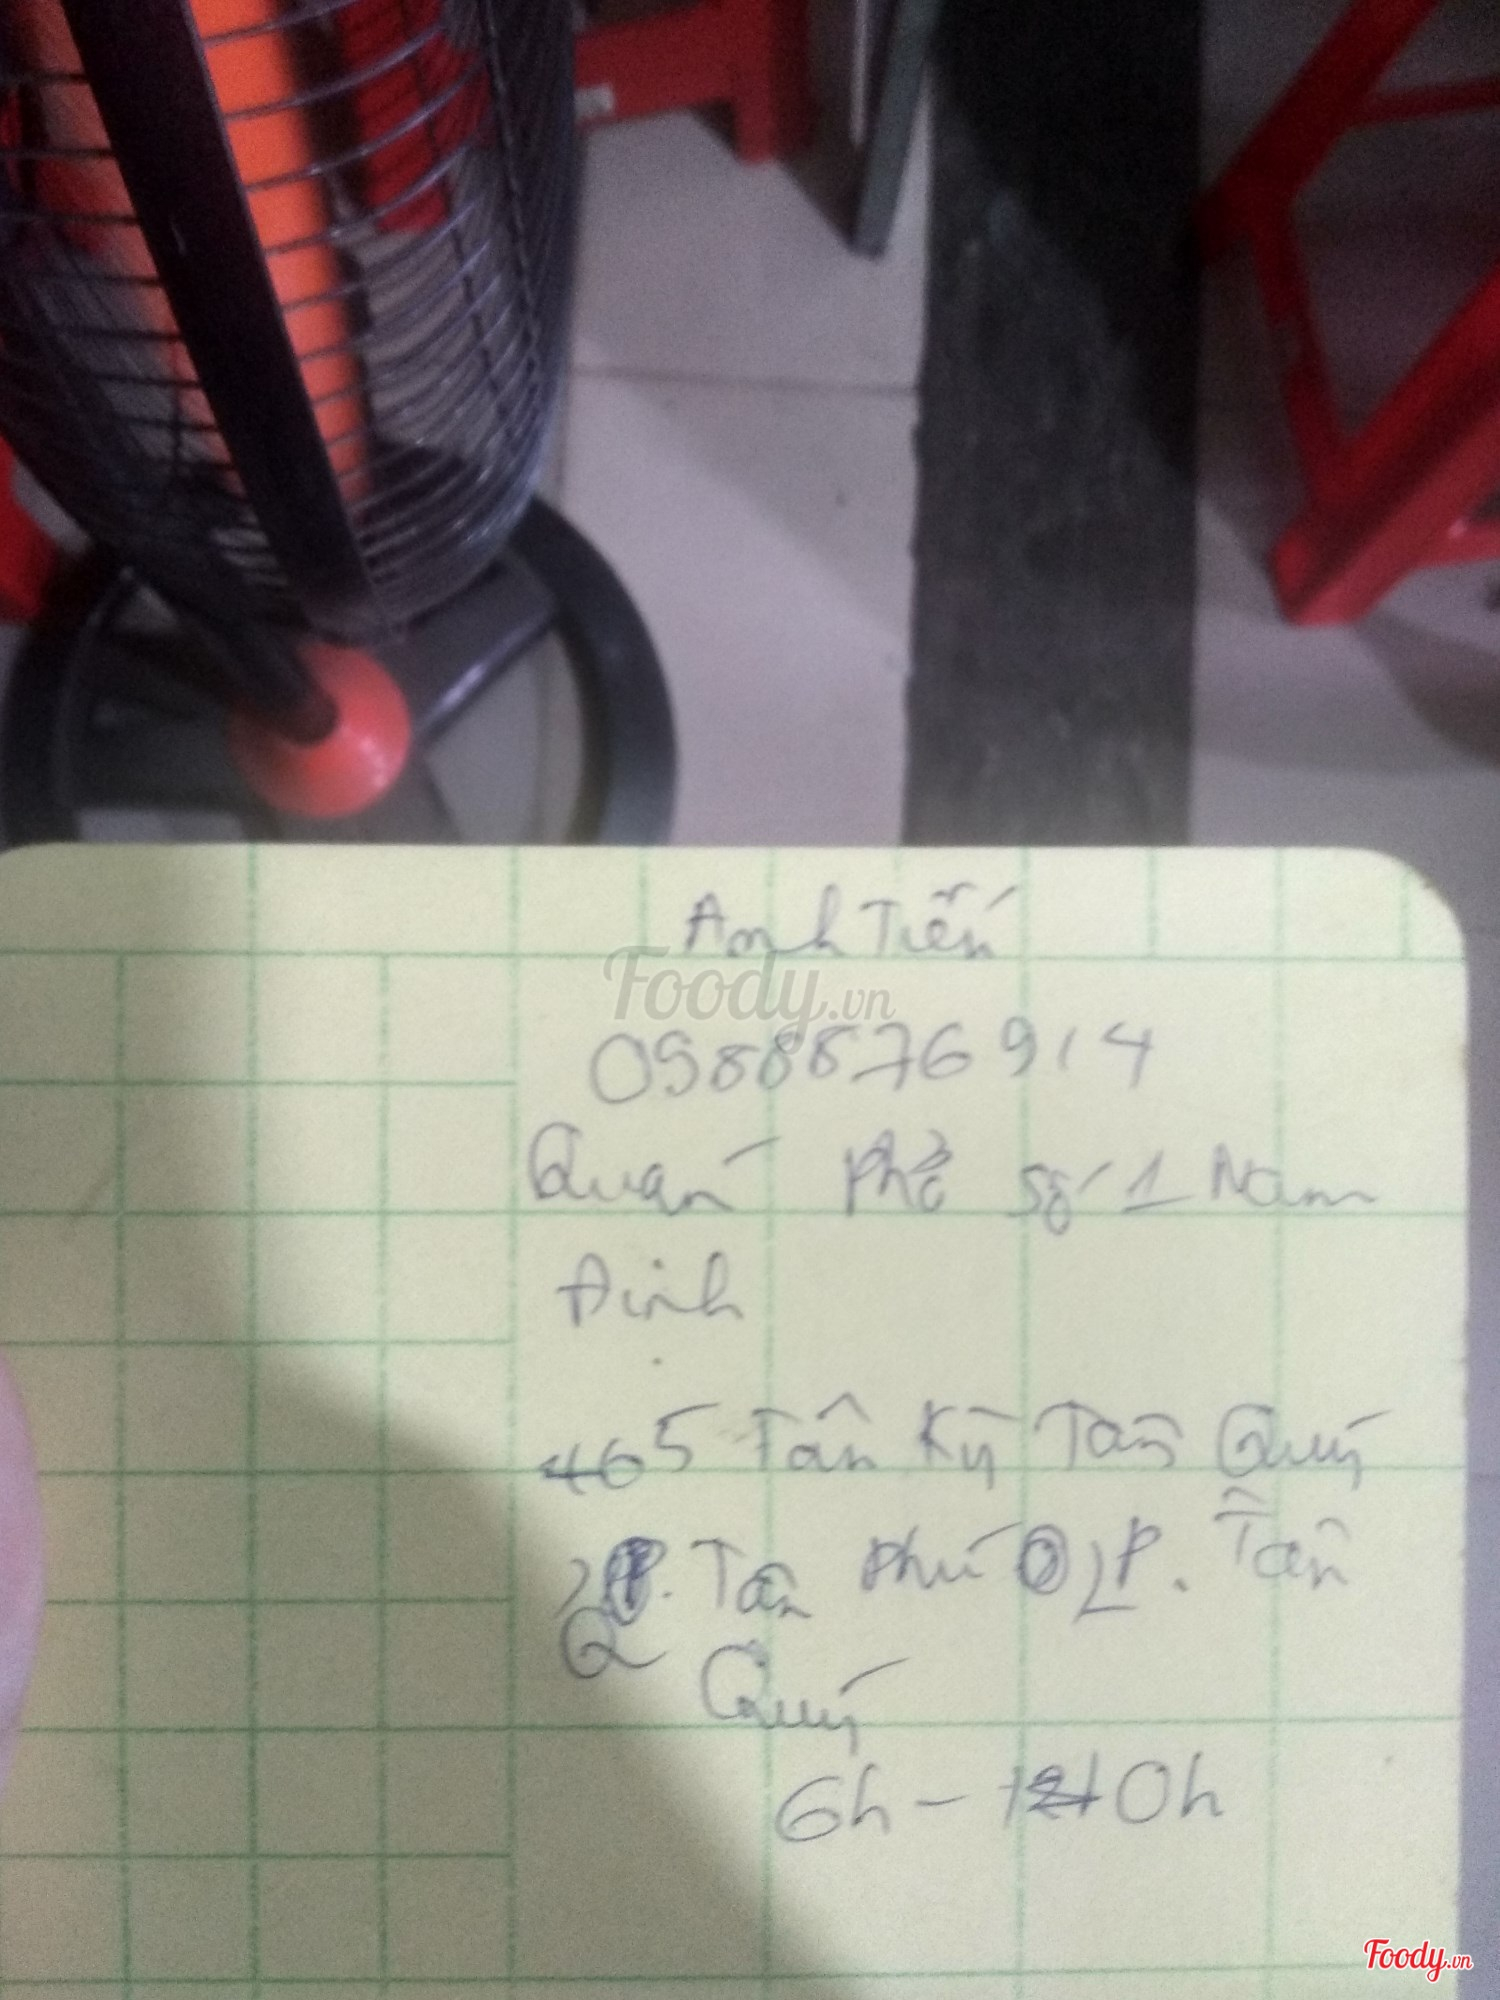 Anh Tiến
Foody.vn
0988876914
Quán Phở Số 1 Nam
Định
465 Tân Kỳ Tân Quý
P. Tân Phú P. Tân
Q Quý
6h - 10h
Foody.vn